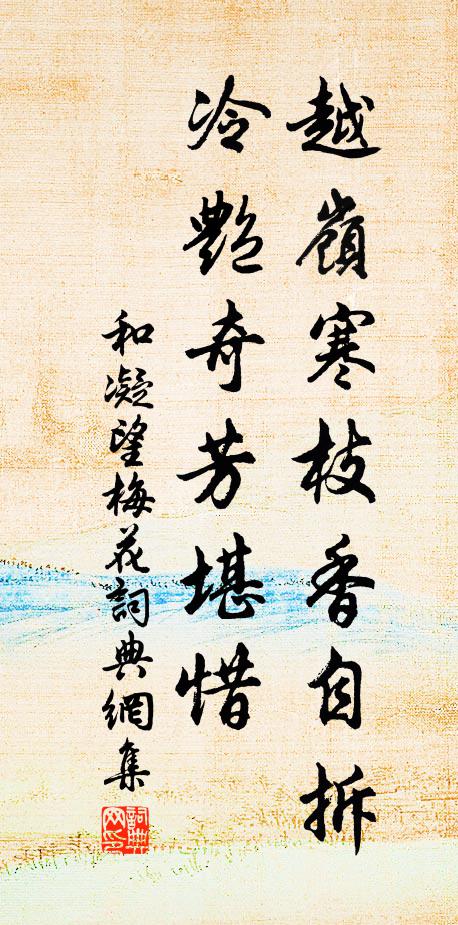 越嶺寒枝香自拆
冷艷奇芳堪惜
和凝望梅花詞典網集
詞典